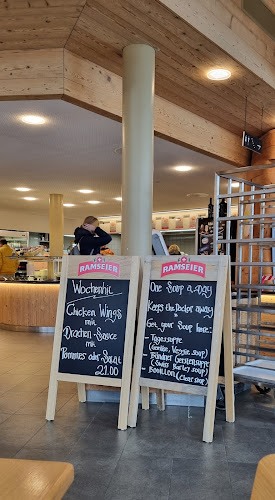 RAMSEIER
Wochenhit
Chicken Wings
mit
Drachen-Sauce
mit
Pommes oder Salat
21.00
RAMSEIER
One Soup a day
Keeps the Doctor away
Get your Soup here:
- Tagessuppe
(Gemüse, Veggie soup)
- Bündner Gerstensuppe
(Swiss Barley soup)
- Bouillon (Clear soup)